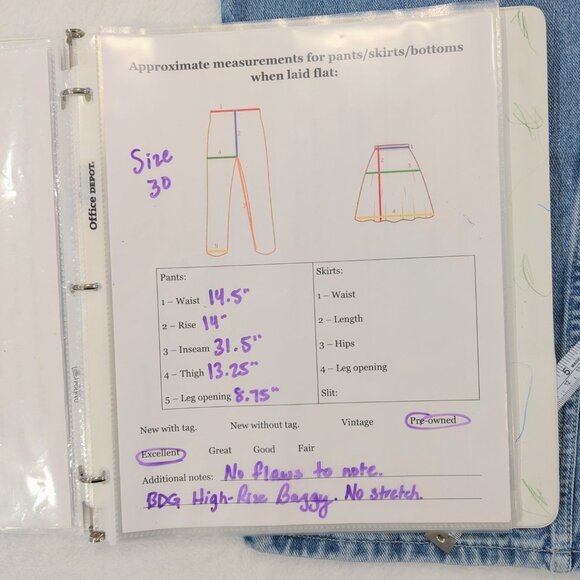 Approximate measurements for pants/skirts/bottoms
when laid flat:
Size
30
1
2
4
3
5
1
2
3
4
Office DEPOT.
Pants:
1 – Waist 14.5"
2 – Rise 14"
3 – Inseam 31.5"
4 – Thigh 13.25"
5 – Leg opening 8.75"
Skirts:
1 – Waist
2 – Length
3 – Hips
4 – Leg opening
Slit:
New with tag. New without tag. Vintage Pre-owned
Excellent Great Good Fair
Additional notes: No flaws to note.
BDG High-Rise Baggy. No stretch.
5